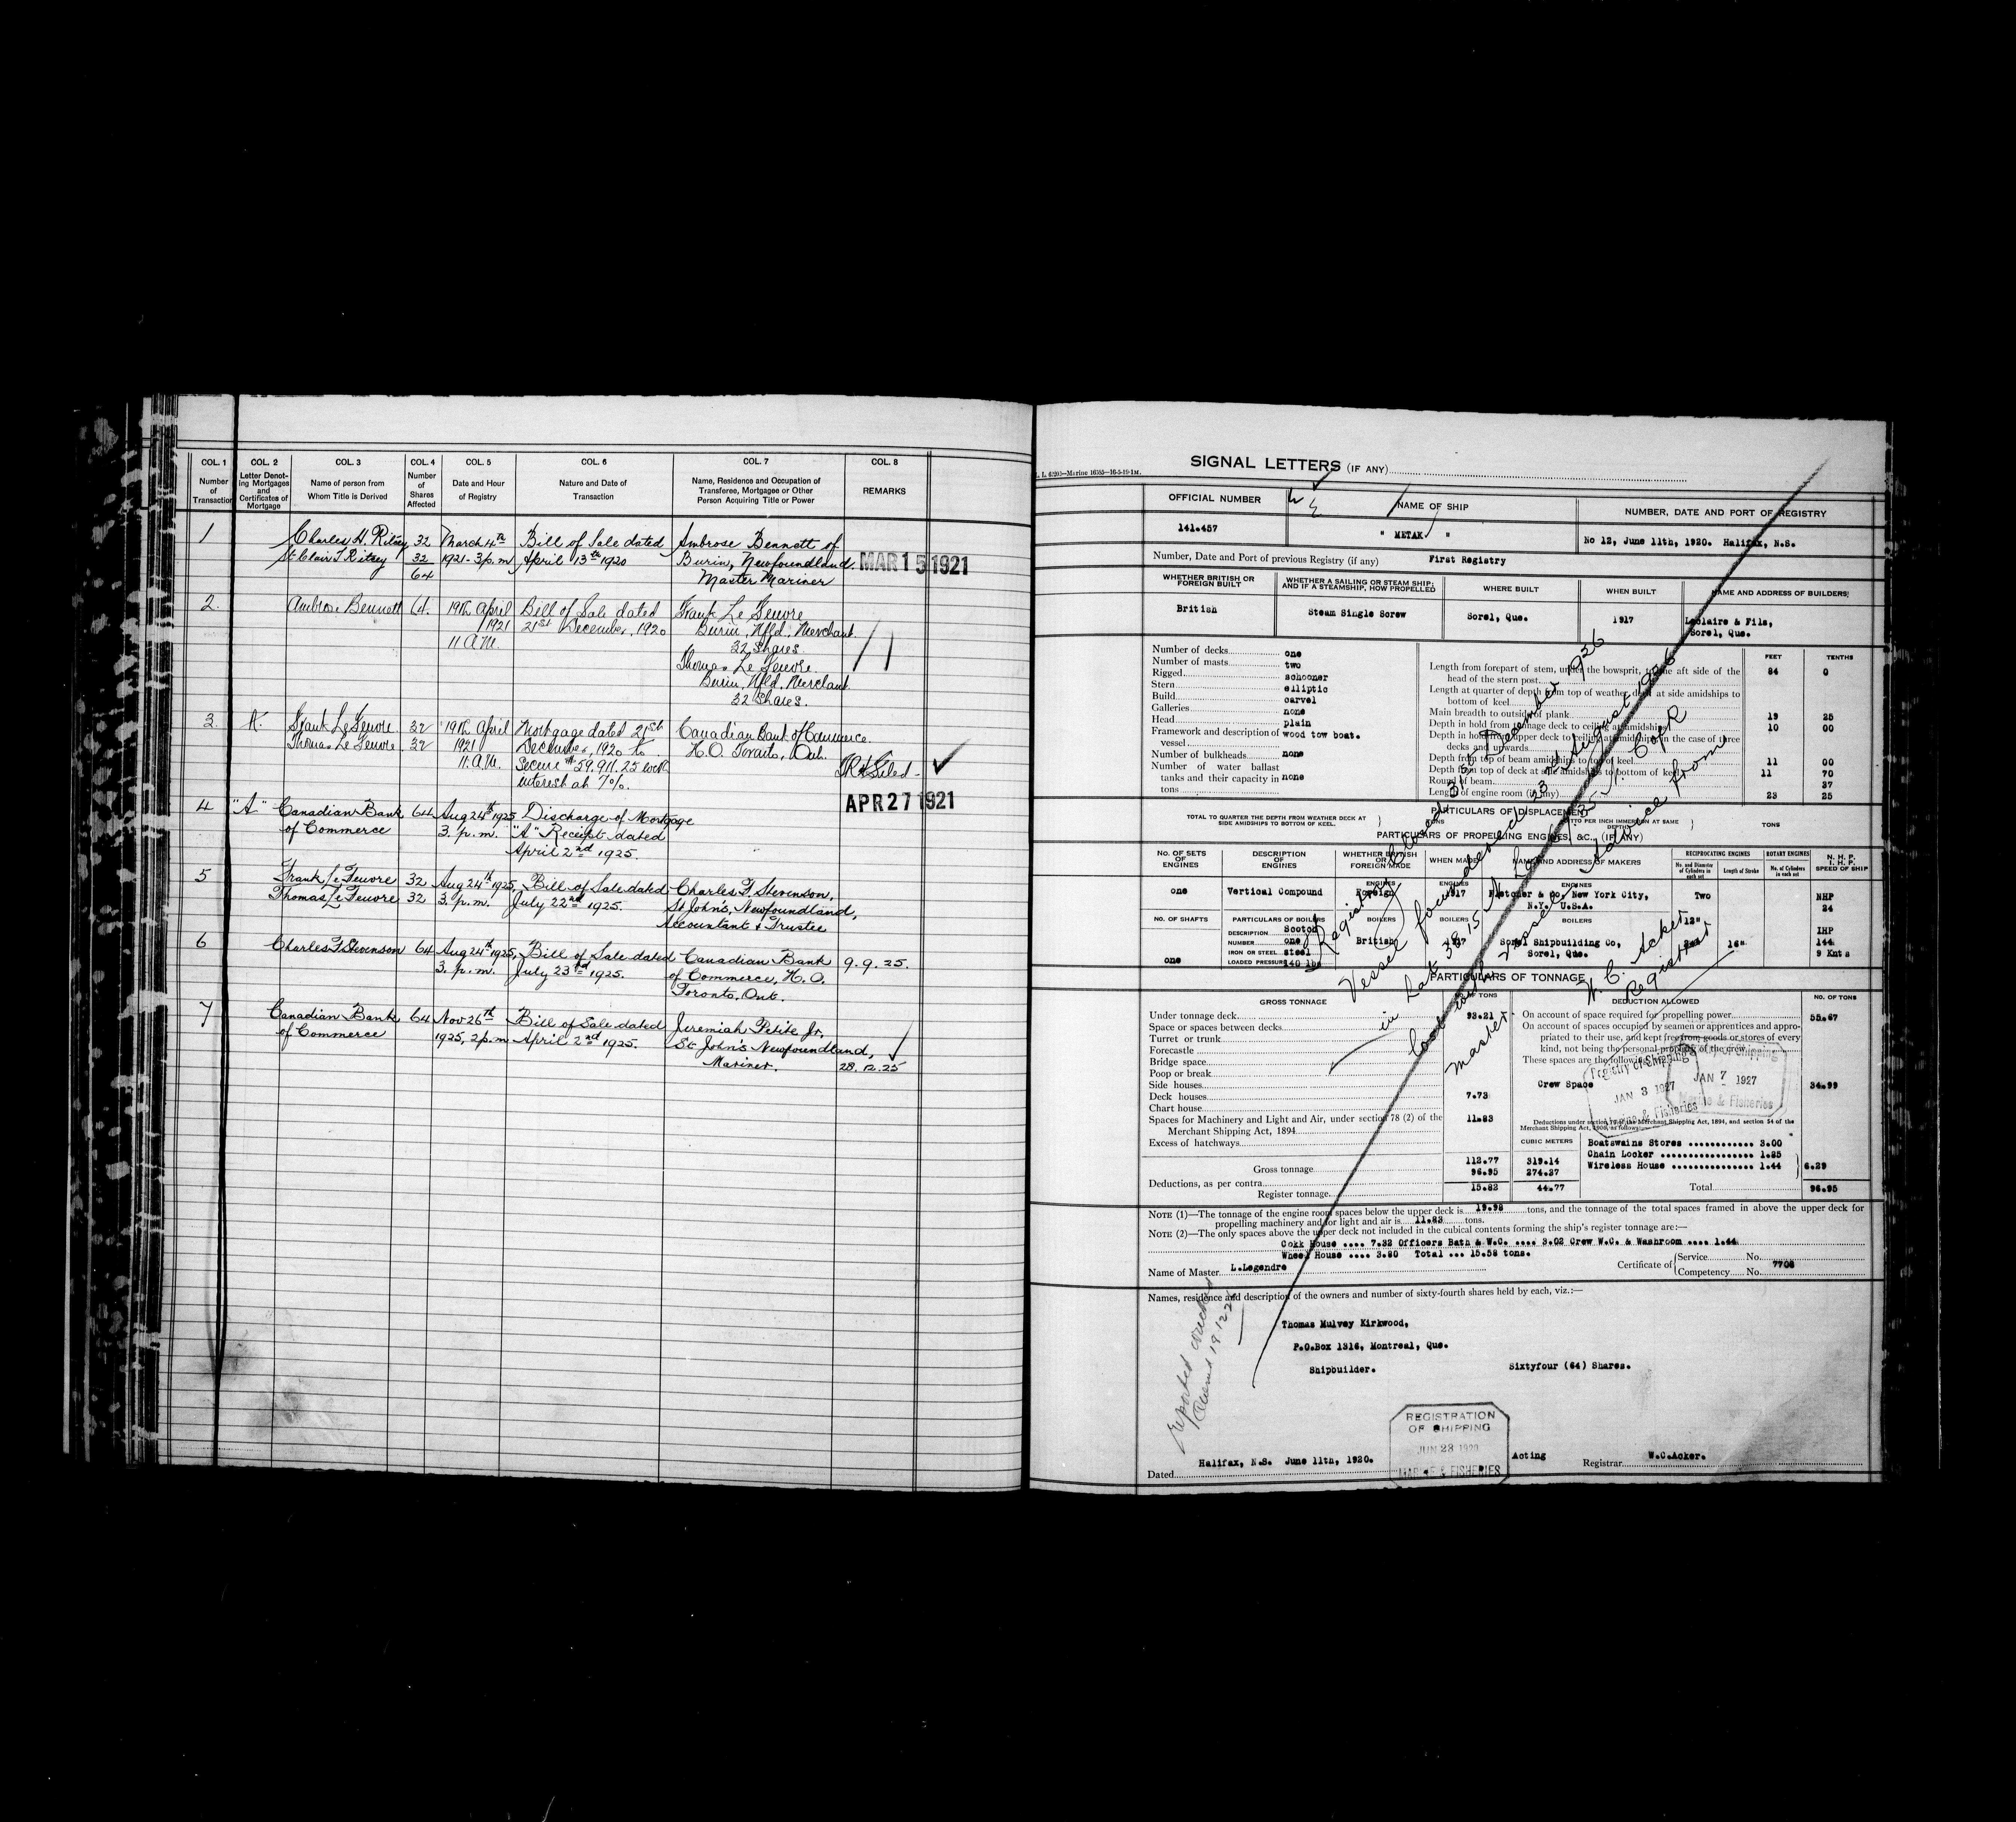 COL. 1 COL. 2 COL. 3 COL. 4 COL. 5 COL. 6 COL. 7 COL. 8
Number of Transaction
Letter Denoting Mortgages and Certificates of Mortgage
Name of person from Whom Title is Derived
Number of Shares Affected
Date and Hour of Registry
Nature and Date of Transaction
Name, Residence and Occupation of Transferee, Mortgagee or Other Person Acquiring Title or Power
REMARKS
1 Charles H. Ritcey 32 March 4th Bill of Sale dated Ambrose Bennett of
St Clair T Ritcey 32 1921 - 3 p.m April 13th 1920 Burin, Newfoundland. MAR 15 1921
64 Master Mariner
2. Ambrose Bennett 64. 19th April Bill of Sale dated Frank Le Feuvre
1921 21st December, 1920 Burin, Nfld, Merchant
11 A.M. 32 shares
Thomas Le Feuvre
Burin, Nfld, Merchant
32 shares.
3. A. Frank Le Feuvre 32 19th April Mortgage dated 21st Canadian Bank of Commerce
Thomas Le Feuvre 32 1921 December, 1920 to H.O. Toronto, Ont.
11. A.M. Secure $59,911.25 with
interest at 7%.
APR 27 1921
4 "A" Canadian Bank 64 Aug 24th 1925 Discharge of Mortgage
of Commerce 3. p.m. "A" Receipt dated
April 2nd 1925.
5 Frank Le Feuvre 32 Aug 24th 1925, Bill of Sale dated Charles F. Stevenson,
Thomas Le Feuvre 32 3. p.m. July 22nd 1925. St John's, Newfoundland,
Accountant & Trustee
6 Charles F Stevenson 64 Aug 24th 1925, Bill of Sale dated Canadian Bank 9.9.25.
3. p.m. July 23rd 1925. of Commerce, H.O.
Toronto, Ont.
7 Canadian Bank 64 Nov 26th Bill of Sale dated Jeremiah Petite Jr,
of Commerce 1925, 2 p.m April 2nd 1925. St John's Newfoundland,
Mariner. 28.12.25
SIGNAL LETTERS (IF ANY)
OFFICIAL NUMBER NAME OF SHIP NUMBER, DATE AND PORT OF REGISTRY
141.457 " METAK " No 12, June 11th, 1920. Halifax, N.S.
Number, Date and Port of previous Registry (if any) First Registry
WHETHER BRITISH OR FOREIGN BUILT
WHETHER A SAILING OR STEAM SHIP; AND IF A STEAMSHIP, HOW PROPELLED
WHERE BUILT
WHEN BUILT
NAME AND ADDRESS OF BUILDERS
British Steam Single Screw Sorel, Que. 1917 Leclaire & Fils,
Sorel, Que.
Number of decks one
Number of masts two
Rigged schooner
Stern elliptic
Build carvel
Galleries none
Head plain
Framework and description of vessel wood tow boat.
Number of bulkheads none
Number of water ballast tanks and their capacity in tons none
FEET TENTHS
Length from forepart of stem, under the bowsprit, to the aft side of the head of the stern post 84 0
Length at quarter of depth from top of weather deck at side amidships to bottom of keel
Main breadth to outside of plank 19 25
Depth in hold from tonnage deck to ceiling at amidships 10 00
Depth in hold from upper deck to ceiling at amidships, in the case of three decks and upwards
Depth from top of beam amidships to top of keel 11 00
Depth from top of deck at side amidships to bottom of keel 11 70
Round of beam 37
Length of engine room (if any) 23 25
PARTICULARS OF DISPLACEMENT
TOTAL TO QUARTER THE DEPTH FROM WEATHER DECK AT SIDE AMIDSHIPS TO BOTTOM OF KEEL.
TONS
DITTO PER INCH IMMERSION AT SAME DEPTH
TONS
PARTICULARS OF PROPELLING ENGINES, &C., (IF ANY)
No. OF SETS OF ENGINES
DESCRIPTION OF ENGINES
WHETHER BRITISH OR FOREIGN MADE
WHEN MADE
NAME AND ADDRESS OF MAKERS
RECIPROCATING ENGINES
No. and Diameter of Cylinders in each set
Length of Stroke
ROTARY ENGINES
No. of Cylinders in each set
N. H. P.
I. H. P.
SPEED OF SHIP
ENGINES ENGINES ENGINES
one Vertical Compound Foreign 1917 Fletcher & Co, New York City, Two NHP
N.Y. U.S.A. 24
NO. OF SHAFTS PARTICULARS OF BOILERS BOILERS BOILERS BOILERS 12"
DESCRIPTION Scotch IHP
NUMBER one British Sorel Shipbuilding Co, 16" 144
IRON OR STEEL steel Sorel, Que. 9 Knts
one LOADED PRESSURE 140 lbs
PARTICULARS OF TONNAGE
GROSS TONNAGE NO. OF TONS DEDUCTION ALLOWED NO. OF TONS
Under tonnage deck 93.21
Space or spaces between decks
Turret or trunk
Forecastle
Bridge space
Poop or break
Side houses
Deck houses 7.73
Chart house
Spaces for Machinery and Light and Air, under section 78 (2) of the Merchant Shipping Act, 1894 11.83
Excess of hatchways
Gross tonnage 112.77 319.14
Deductions, as per contra 96.95 274.37
Register tonnage 15.82 44.77
CUBIC METERS
On account of space required for propelling power 55.67
On account of spaces occupied by seamen or apprentices and appropriated to their use, and kept free from goods or stores of every kind, not being the personal property of the crew
These spaces are the following, viz.:
Crew Space 34.99
Deductions under section 79 of the Merchant Shipping Act, 1894, and section 54 of the Merchant Shipping Act, 1906, as follows:
Boatswains Stores 3.00
Chain Locker 1.85
Wireless House 1.44 6.29
Total 96.95
NOTE (1)—The tonnage of the engine room spaces below the upper deck is 19.98 tons, and the tonnage of the total spaces framed in above the upper deck for
propelling machinery and for light and air is 11.83 tons.
NOTE (2)—The only spaces above the upper deck not included in the cubical contents forming the ship's register tonnage are:—
Cokk House .... 7.32 Officers Bath & W.C. .... 3.02 Crew W.C. & Washroom .... 1.44
Wheel House .... 3.80 Total ... 15.58 tons.
Name of Master L.Legendre Certificate of Service No.
Competency No. 7708
Names, residence and description of the owners and number of sixty-fourth shares held by each, viz.:—
Thomas Mulvey Kirkwood,
P.O.Box 1316, Montreal, Que.
Shipbuilder. Sixtyfour (64) Shares.
Dated Halifax, N.S. June 11th, 1920. Acting Registrar W.C.Acker.
REGISTRATION
OF SHIPPING
JUN 23 1920
MARINE & FISHERIES
Registry of Shipping
JAN 3 1927
Marine & Fisheries
JAN 7 1927
Marine & Fisheries
Registry closed 31st December 1926
Vessel foundered 23rd August 1926
in Lat 38.15 N
Advice from
Master
W. C. Acker
Registrar
reported wrecked